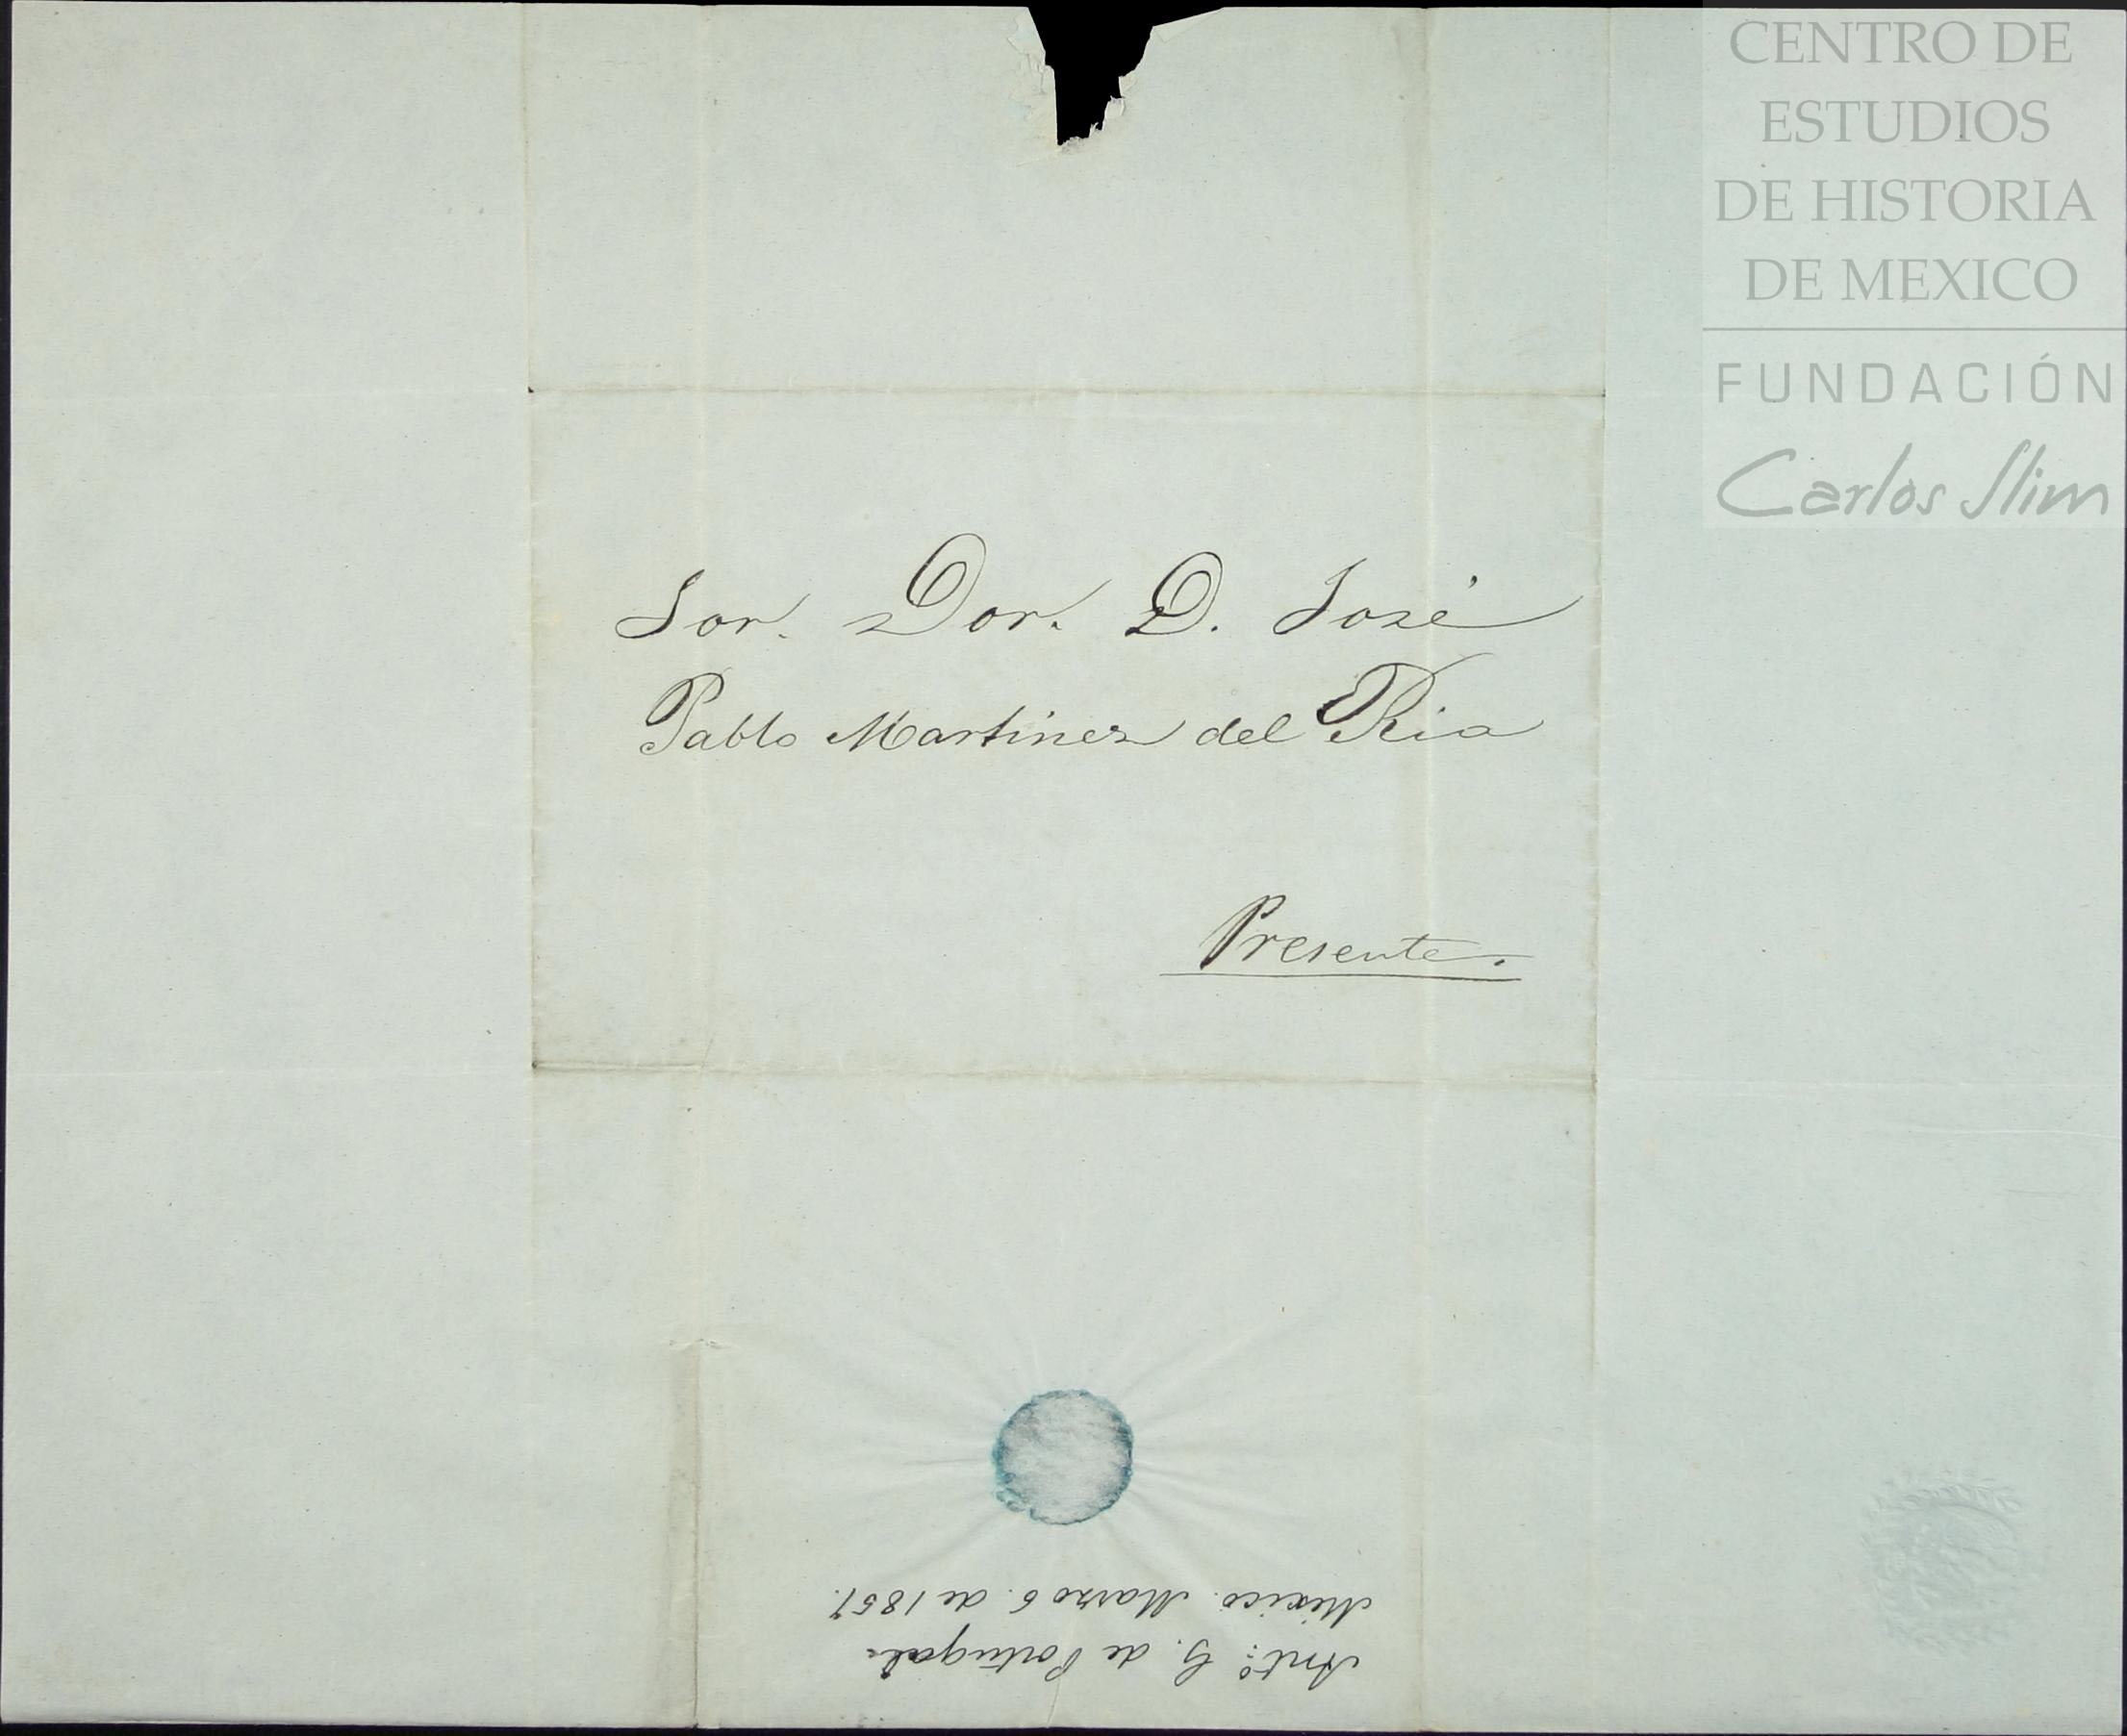 CENTRO DE
ESTUDIOS
DE HISTORIA
DE MEXICO
FUNDACIÓN
Carlos Slim
Sor. Dor. D. José
Pablo Martinez del Rio
Presente.
Anto. G. de Portugal.
México. Marzo 6. de 1857.